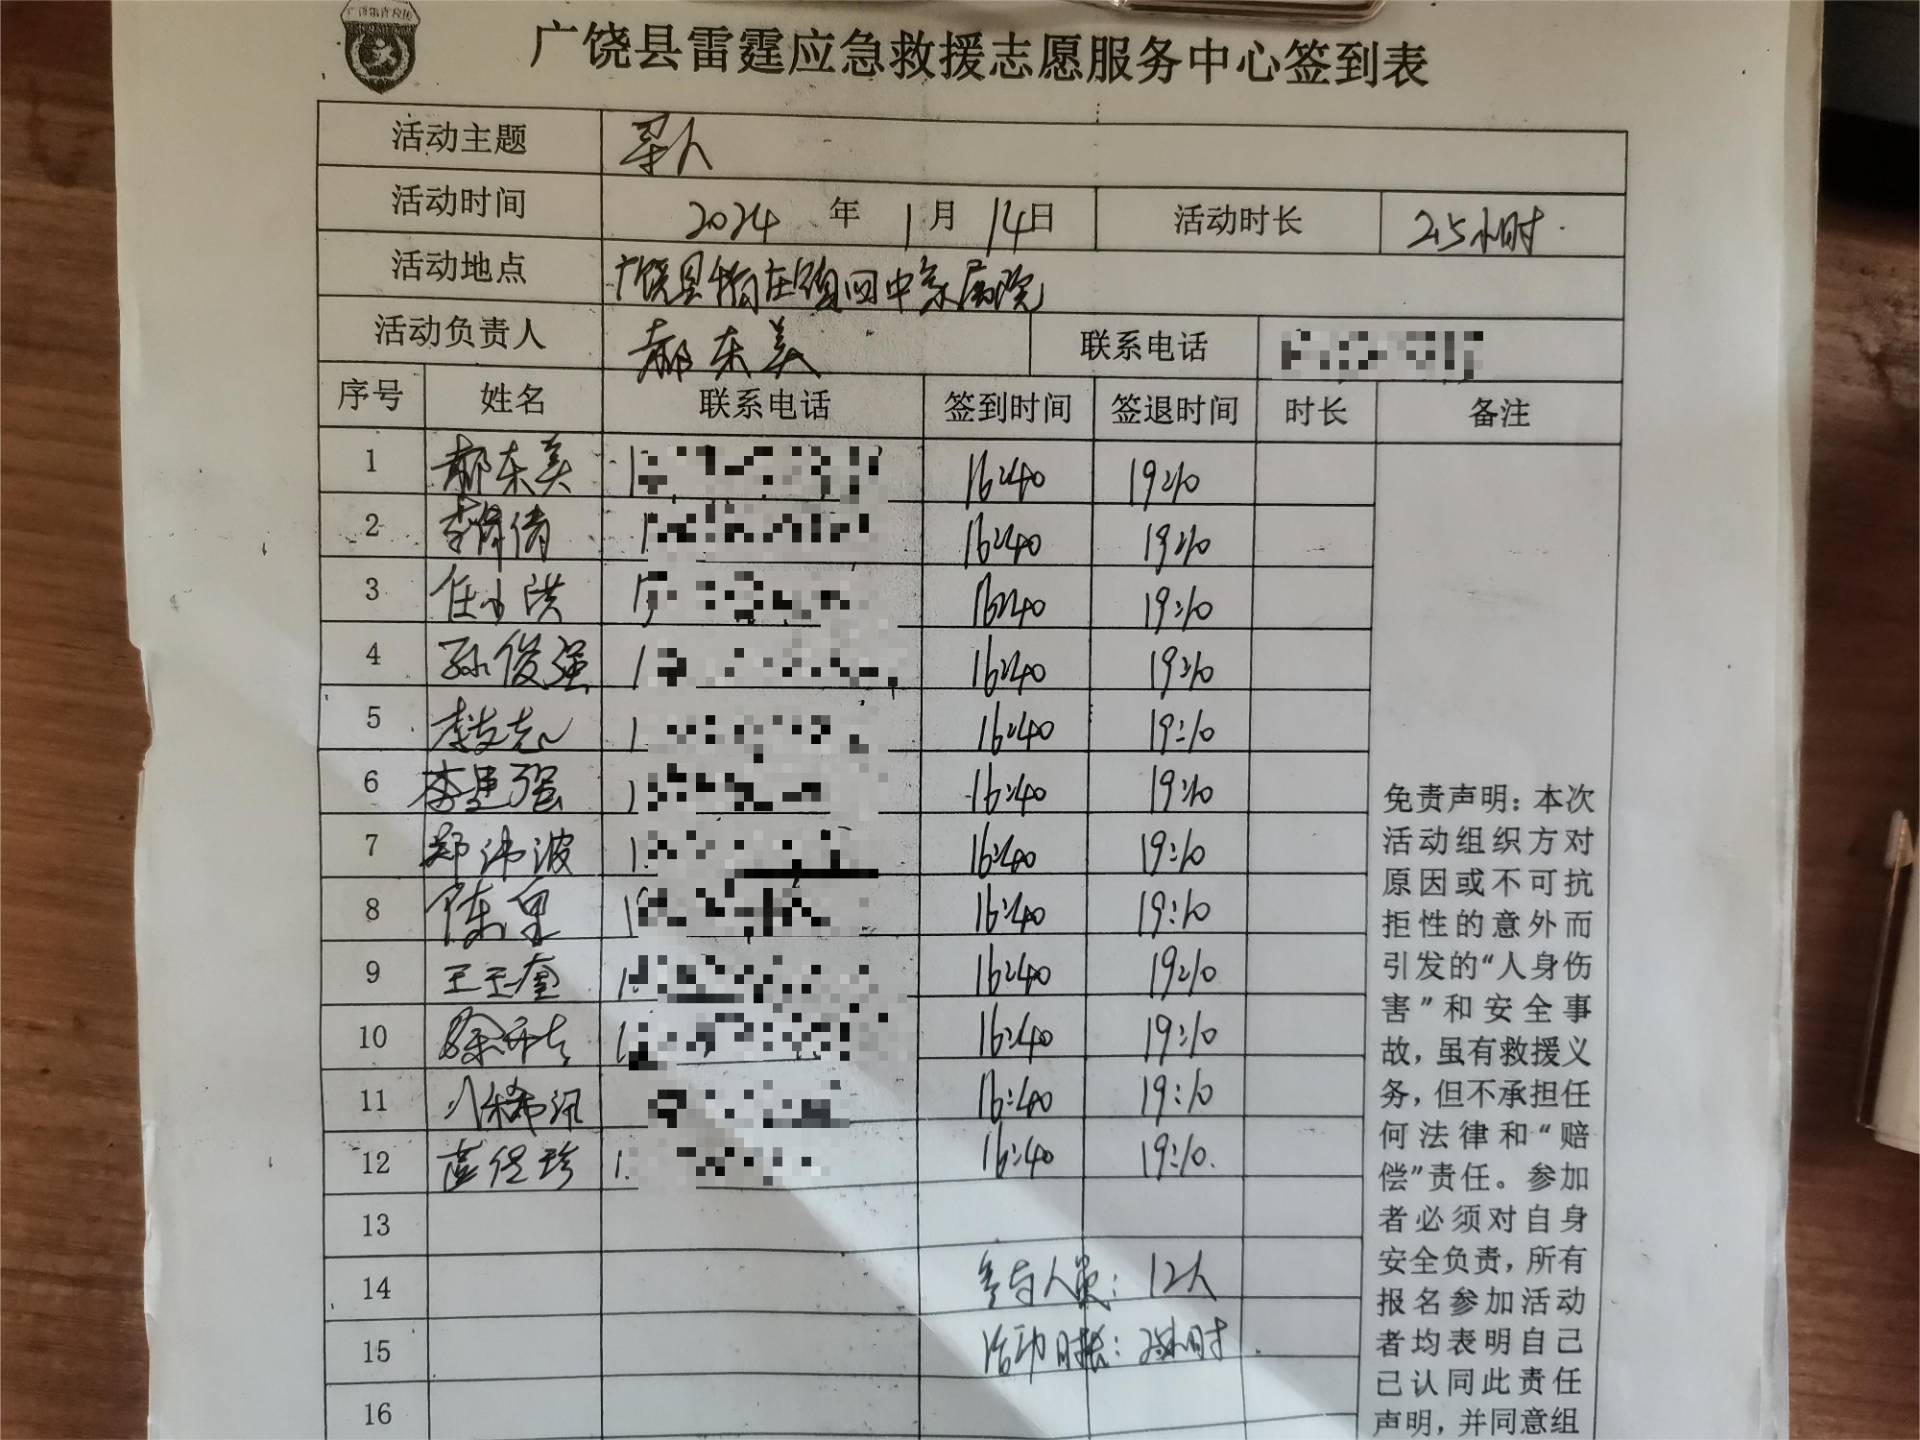 广饶县雷霆应急救援志愿服务中心签到表
活动主题 寻人
活动时间 2024年1月14日 活动时长 2.5小时
活动地点 广饶县
活动负责人 郝东美 联系电话
序号 姓名 联系电话 签到时间 签退时间 时长 备注
1 郝东美 1 16:40 19:10
2 李 倩 1 16:40 19:10
3 任小洪 15 16:40 19:10
4 孙俊强 1 16:40 19:10
5 李文志 1 16:40 19:10
6 李 强 1 16:40 19:10
7 郑 波 1 16:40 19:10
8 陈 1 16:40 19:10
9 王玉奎 1 16:40 19:10
10 徐 1 16:40 19:10
11 16:40 19:10
12 珍 1 16:40 19:10.
13
14 参与人员：12人
15 活动时长：2.5小时.
16
免责声明：本次
活动组织方对
原因或不可抗
拒性的意外而
引发的“人身伤
害”和安全事
故，虽有救援义
务，但不承担任
何法律和“赔
偿”责任。参加
者必须对自身
安全负责，所有
报名参加活动
者均表明自己
已认同此责任
声明，并同意组